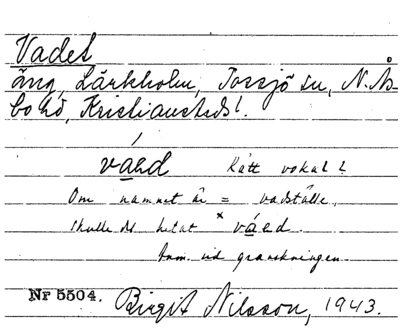 Vadet
äng, Lärkholm, Tossjö sn, N. Ås-
bo hd, Kristianstads l.
vaed Rätt vokal?
Om namnet är = vadställe,
skulle det hetat ˣváed.
Anm. vid granskningen.
Nr 5504. Birgit Nilsson, 1943.